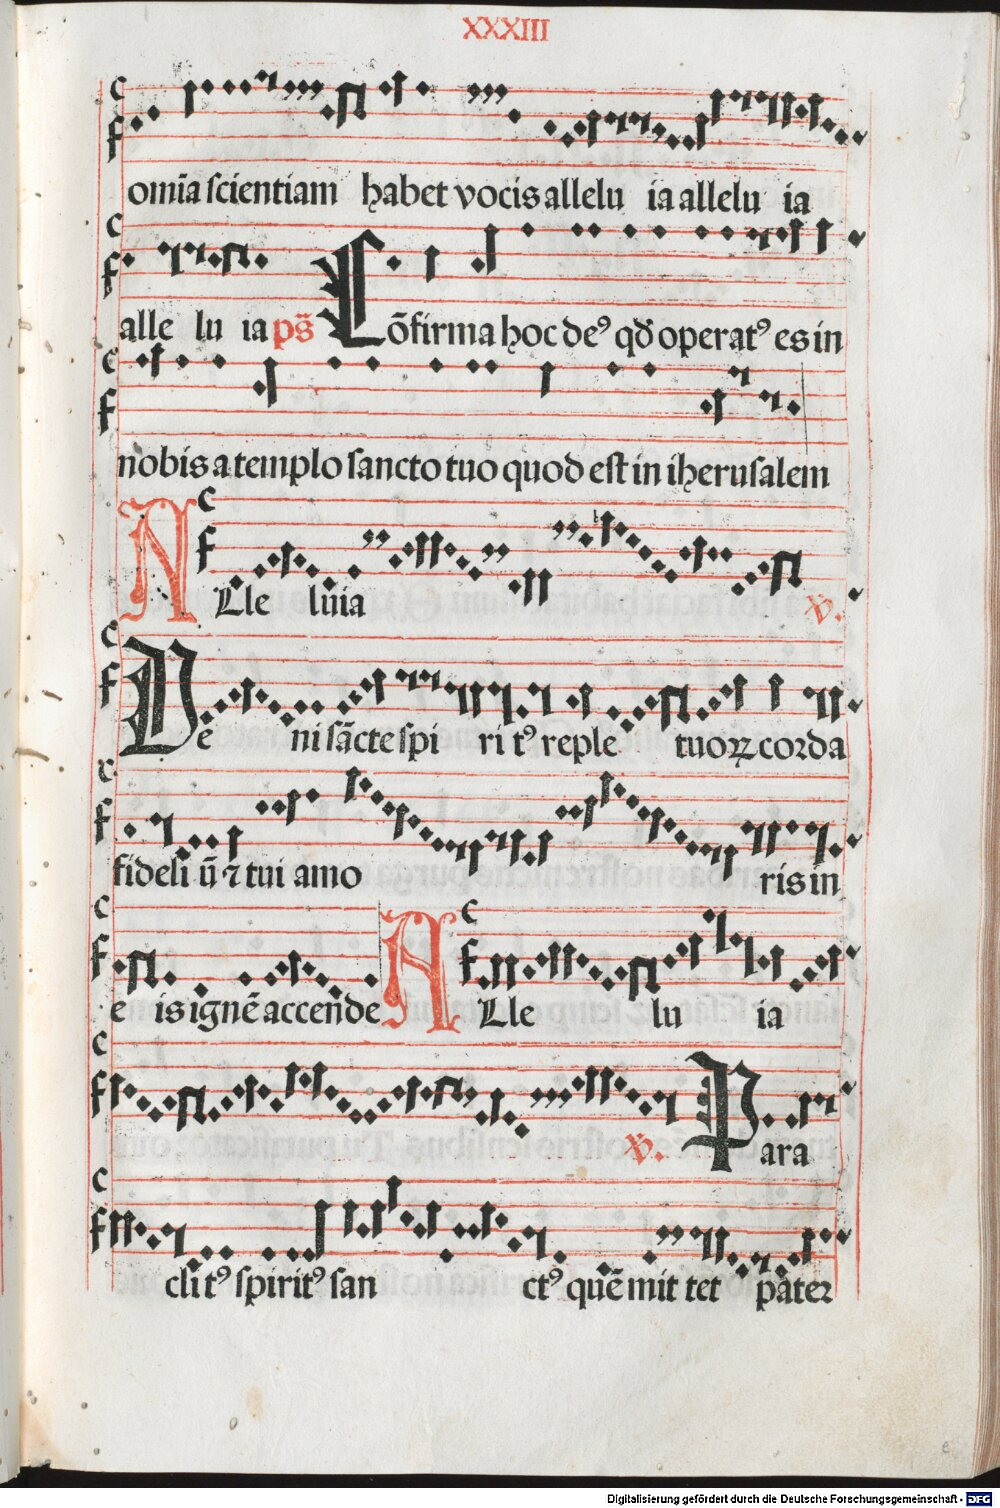 XXXIII
omīa scientiam habet vocis allelu ia allelu ia
alle lu ia ps̄ Cōfirma hoc deꝰ qđ operatꝰ es in
nobis a templo sancto tuo quod est in iherusalem
ALle luia ℣.
Ve ni sācte spi ri tꝰ reple tuoꝝ corda
fideli ū ⁊ tui amo ris in
e is ignē accende ALle lu ia
℣. Para
cli tꝰ spiritꝰ san ctꝰ quē mit tet pater
Digitalisierung gefördert durch die Deutsche Forschungsgemeinschaft - DFG